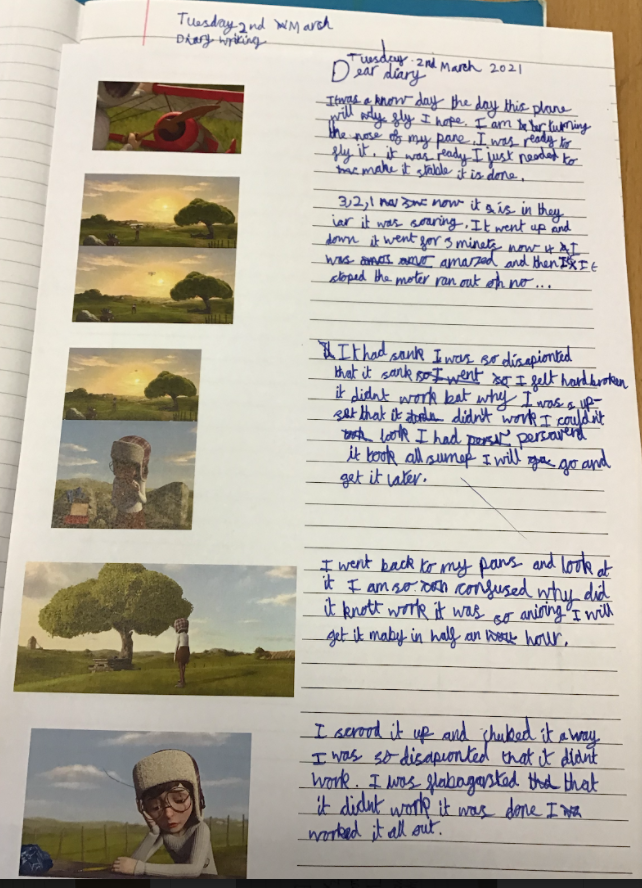 Tuesday 2nd March
Diary writing
Tuesday 2nd March 2021
Dear diary
It was a know day the day this plane
will fly I hope. I am turning
the nose of my pane. I was ready to
fly it. it was ready I just needed to
make it stable it is done.
3,2,1 now it is in they
iar it was soaring. It went up and
down it went for 3 minets now I
was amazed and then It
stoped the moter ran out oh no...
It had sank I was so disapionted
that it sank so I went so I felt hardbroken
it didnt work bat why I was up-
set that it didn't work I couldn't
look I had persaverd
it took all sumep I will go and
get it later.
I went back to my pans and look at
it I am so confused why did
it knott work it was so aniring I will
get it maby in half an hour.
I scrood it up and chubed it away
I was so disapionted that it didnt
work. I was flabagarsted that
it didnt work it was done I
worked it all out.